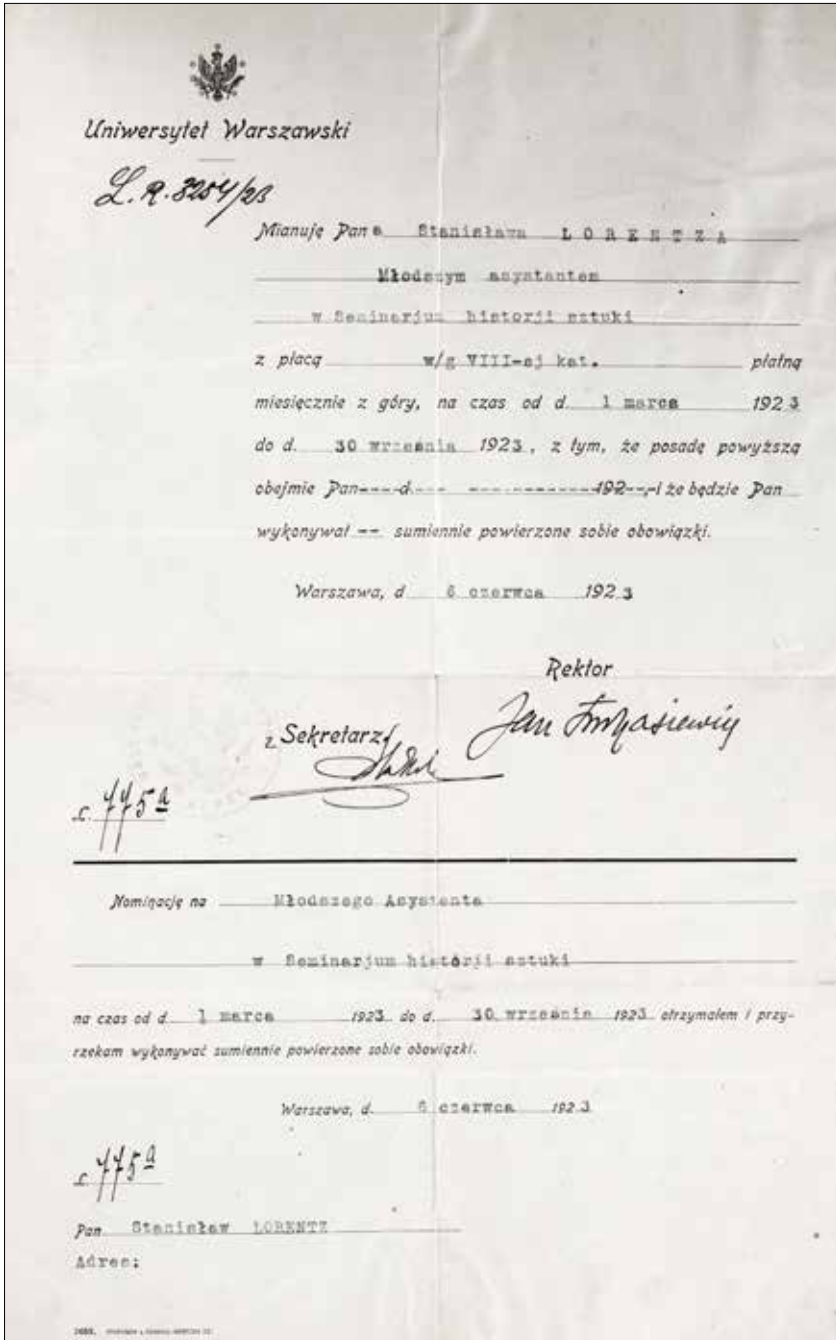 Uniwersytet Warszawski
L. R. 3254/23
Mianuję Pana Stanisława LORENTZA
Młodszym asystantem
w Seminarjum historji sztuki
z płacą w/g VIII-ej kat. płatną
miesięcznie z góry, na czas od d. 1 marca 1923
do d. 30 września 1923, z tym, że posadę powyższą
obejmie Pan----d---- ------------192--,-i że będzie Pan
wykonywał -- sumiennie powierzone sobie obowiązki.
Warszawa, d 6 czerwca 1923
Rektor
Jan Łukasiewicz
z Sekretarz
c. 775a
Nominację na Młodszego Asystenta
w Seminarjum histórji sztuki
na czas od d. 1 marca 1923 do d. 30 września 1923 otrzymałem i przy-
rzekam wykonywać sumiennie powierzone sobie obowiązki.
Warszawa, d. 6 czerwca 1923
c 775a
Pan Stanisław LORENTZ
Adres: